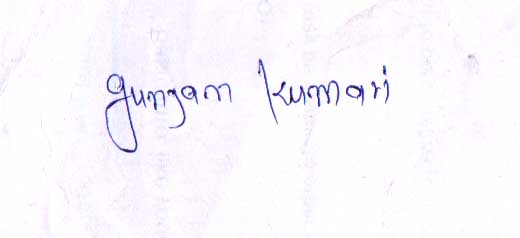 gunjan kumari